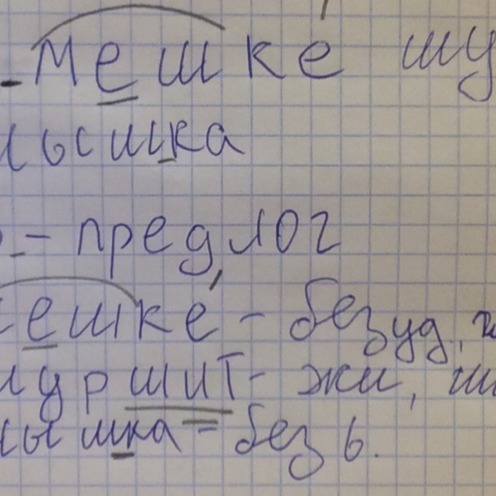 -мешке шу
ысшка
- предлог
ешке - безуд,
шуршит - жи, ши
ышка - без ь.